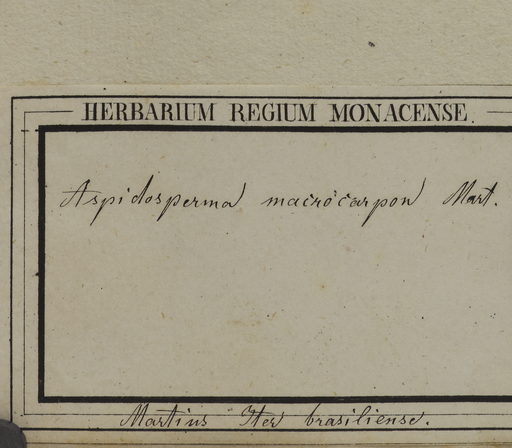 HERBARIUM REGIUM MONACENSE.
Aspidosperma macrocarpon Mart.
Martius Iter brasiliense.